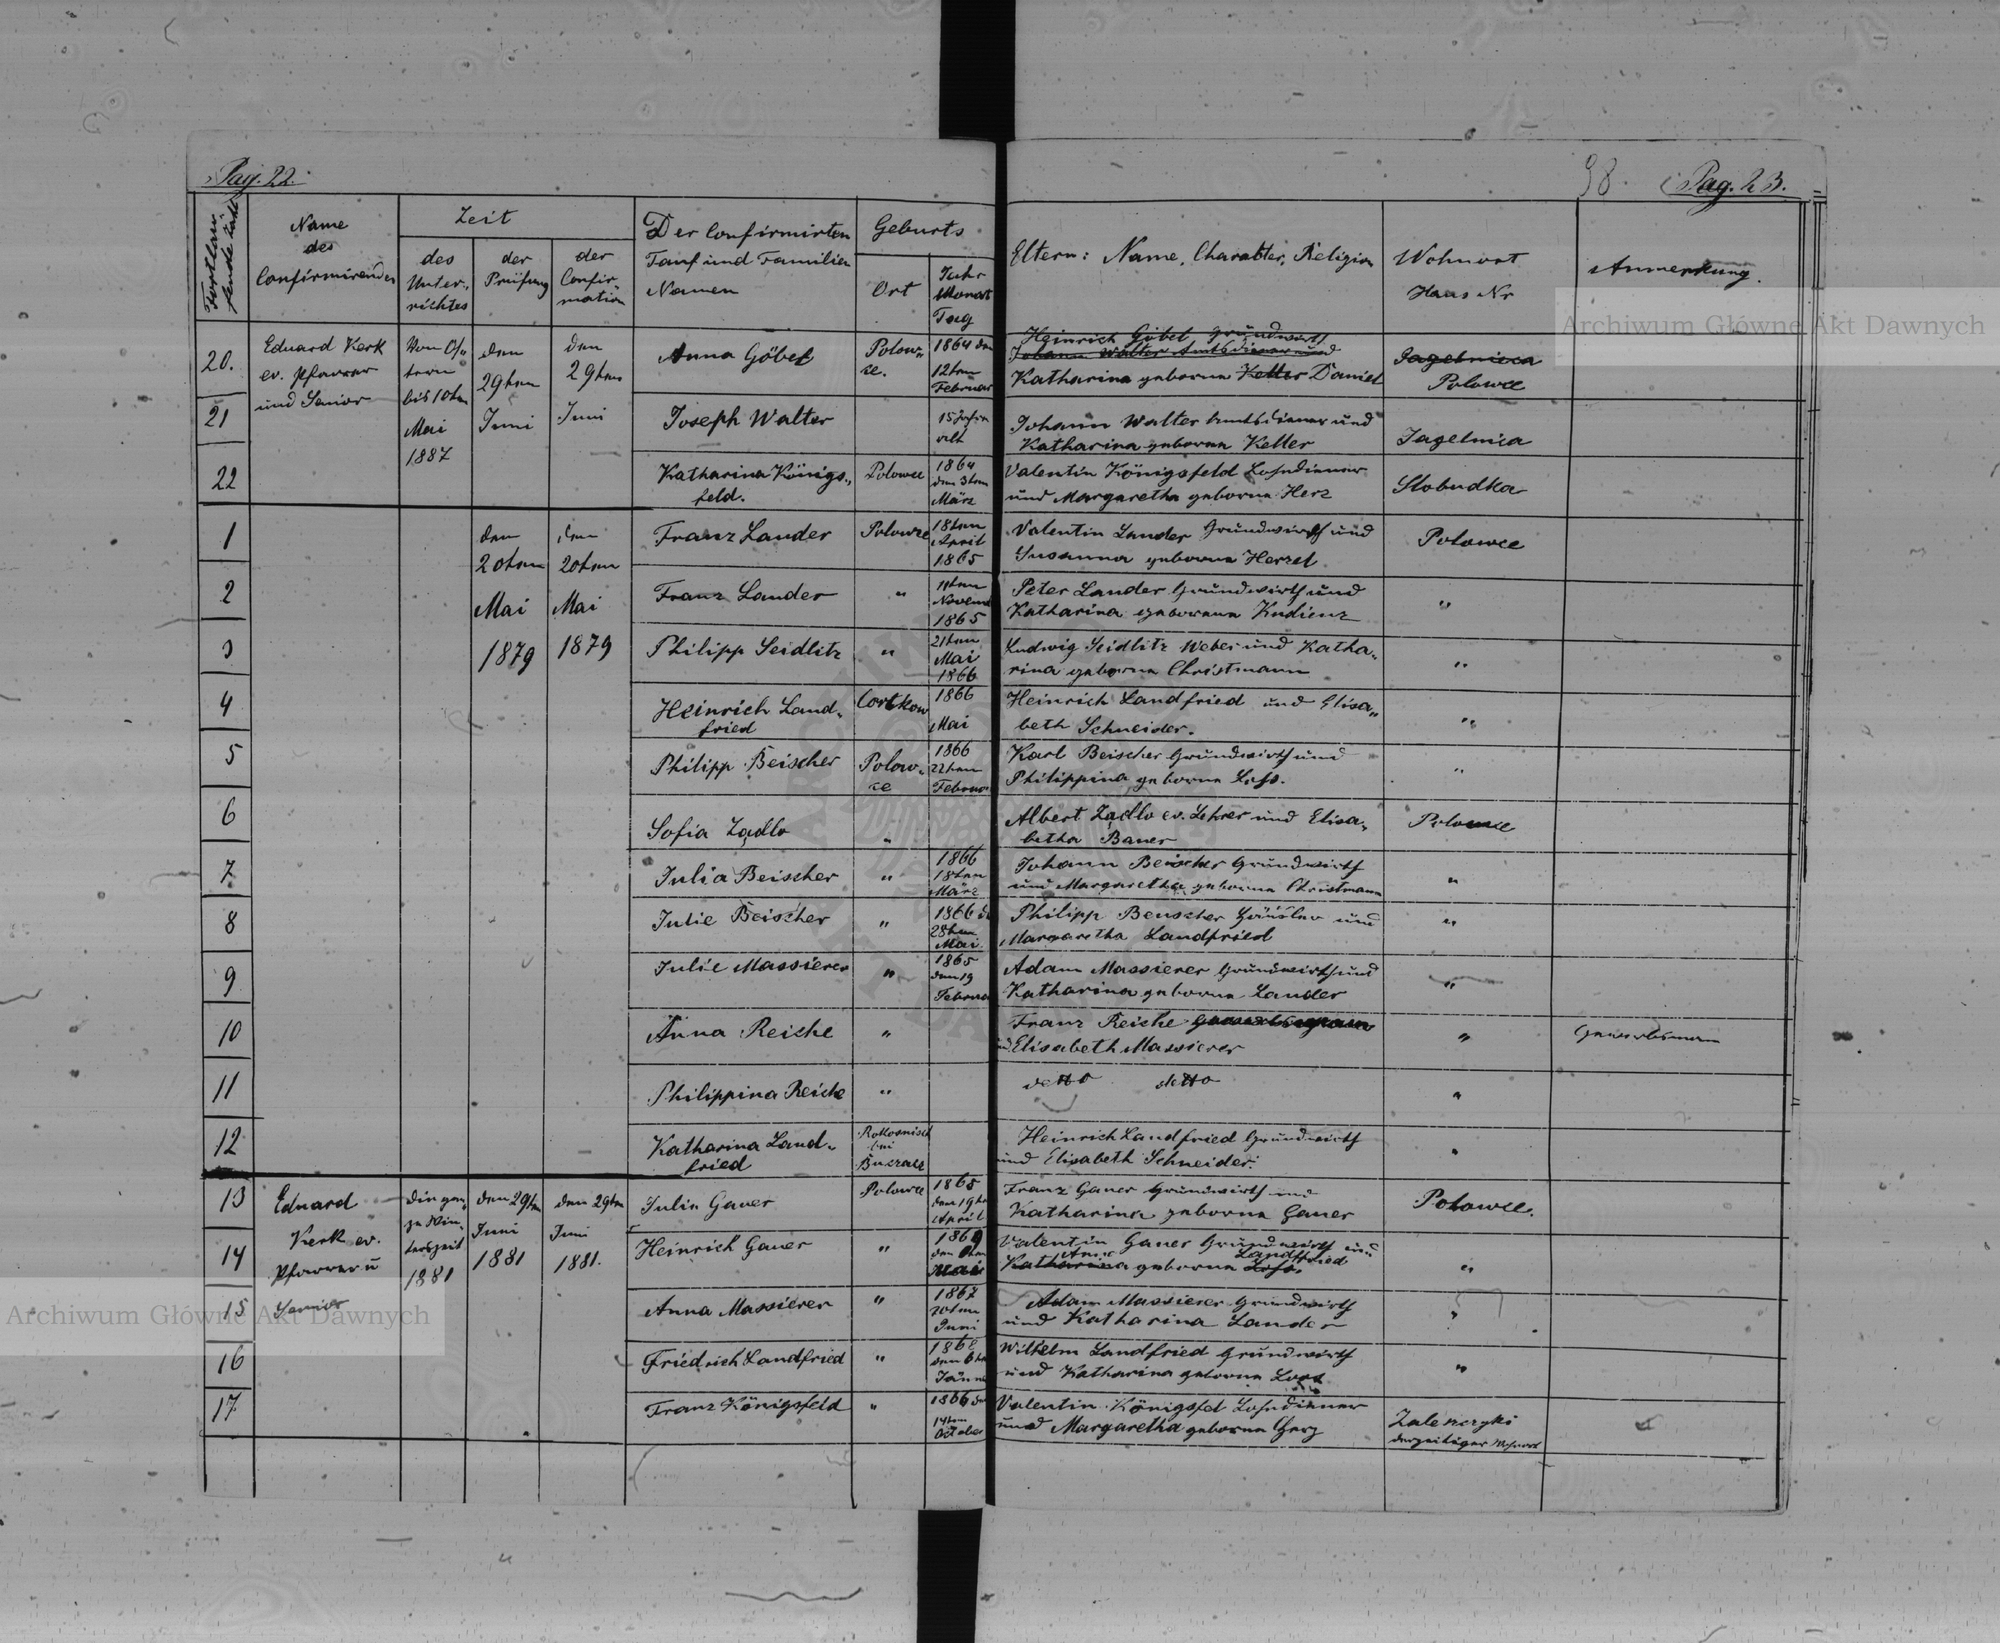 Pag. 22.
98. Pag. 23.
Fortlau-
fende Zahl
Name
des
Confirmirenden
Zeit
des
Unter-
richtes
der
Prüfung
der
Confir-
mation
Der Confirmirten
Tauf und Familien
Namen
Geburts
Ort
Jahr
Monat
Tag
Eltern: Name, Charakter, Religion
Wohnort
Haus Nr
Anmerkung.
20.
Eduard Kerk
ev. Pfarrer
und Senior
Vom
bis 10ten
Mai
1887
den
29ten
Juni
den
29ten
Juni
Anna Göbel
Polow-
ce.
1864 den
12ten
Februar
Heinrich Göbel Grundwirth
Johann Walter Amtsdiener und
Katharina geborene Keller Daniel
Jagelnica
Polowce
21
Joseph Walter
15 Jahre
alt
Johann Walter Amtsdiener und
Katharina geborene Keller
Jagelnica
22
Katharina Königs-
feld.
Polowce
1864
den 3ten
März
Valentin Königsfeld Lohndiener
und Margaretha geborene Herz
Slobudka
1
den
20ten
Mai
1879
den
20ten
Mai
1879
Franz Lander
Polowce
18ten
April
1865
Valentin Lander Grundwirth und
Susanna geborene Herzel
Polowce
2
Franz Lander
"
11ten
Novemb
1865
Peter Lander Grundwirth und
Katharina geborene Kudienz
"
3
Philipp Seidlitz
"
21ten
Mai
1866
Ludwig Seidlitz Weber und Katha-
rina geborene Christmann
"
4
Heinrich Land-
fried
Cortkow
1866
Mai
Heinrich Landfried und Elisa-
beth Schneider.
"
5
Philipp Beischer
Polow-
ce
1866
22ten
Februar
Karl Beischer Grundwirth und
Philippina geborene Loss.
"
6
Sofia Żądło
"
Albert Żądło ev. Lehrer und Elisa-
betha Bauer
Polowce
7
Julia Beischer
"
1866
18ten
März
Johann Beischer Grundwirth
und Margaretha geborene Christmann
"
8
Julie Beischer
"
1866 d
28ten
Mai
Philipp Beuscher Häusler und
Margaretha Landfried
"
9
Julie Massierer
"
1865
den 19
Februa
Adam Massierer Grundwirth und
Katharina geborene Lander
"
10
Anna Reiche
"
Franz Reiche
und Elisabeth Massierer
"
Gewerbsmann
11
Philippina Reiche
"
detto detto
"
12
Katharina Land-
fried
bei
Buczacz
Heinrich Landfried Grundwirth
und Elisabeth Schneider.
"
13
Eduard
Kerk ev.
Pfarrer u
Senior
Die gan-
ze Win-
terszeit
1881
den 29ten
Juni
1881
den 29ten
Juni
1881.
Julie Gauer
Polowce
1865
den 19ten
April
Franz Gauer Grundwirth und
Katharina geborene Gauer
Polowce.
14
Heinrich Gauer
"
1869
den
Mai
Valentin Gauer Grundwirth und
Anna Landfried
Katharina geborene Loss.
"
15
Anna Massierer
"
1867
20ten
Juni
Adam Massierer Grundwirth
und Katharina Lander
"
16
Friedrich Landfried
"
den 6ten
Jänner
Wilhelm Landfried Grundwirth
und Katharina geborene Loos
"
17
Franz Königsfeld
"
1866 den
14ten
October
Valentin Königsfel Lohndiener
und Margaretha geborene Herz
Zaleszczyki
derzeitiger Wohnort
Archiwum Główne Akt Dawnych
Archiwum Główne Akt Dawnych